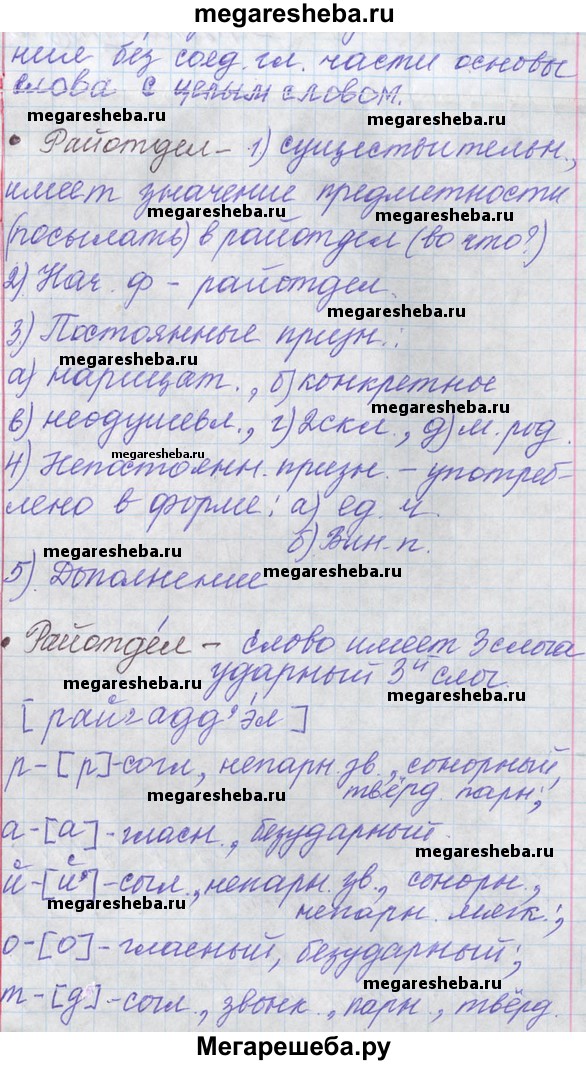 megaresheba.ru
ния без соед. гл. части основы
слова с целым словом.
megaresheba.ru
megaresheba.ru
• Райотдел – 1) существительн.,
имеет значение предметности
megaresheba.ru
megaresheba.ru
(посылать) в райотдел (во что?)
2) Нач. ф – райотдел.
megaresheba.ru
3) Постоянные призн.:
megaresheba.ru
а) нарицат., б) конкретное
megaresheba.ru
в) неодушевл., г) 2 скл., д) м. род.
megaresheba.ru
4) Непостоянн. призн. – употреб-
лено в форме: а) ед. ч.
megaresheba.ru
б) Вин. п.
megaresheba.ru
5) Дополнение
megaresheba.ru
• Райотде́л – слово имеет 3 слога
ударный 3й слог.
megaresheba.ru
megaresheba.ru
[рай'адд'эл]
р-[р]-согл., непарн. зв., сонорный,
megaresheba.ru
твёрд. парн.;
megaresheba.ru
а-[а]-гласн., безударный.
megaresheba.ru
й-[й']-согл., непарн. зв., сонорн.,
megaresheba.ru
непарн. мягк.;
о-[о]-гласный, безударный;
megaresheba.ru
т-[д]-согл., звонк., парн., твёрд.
megaresheba.ru
Мегарешеба.ру